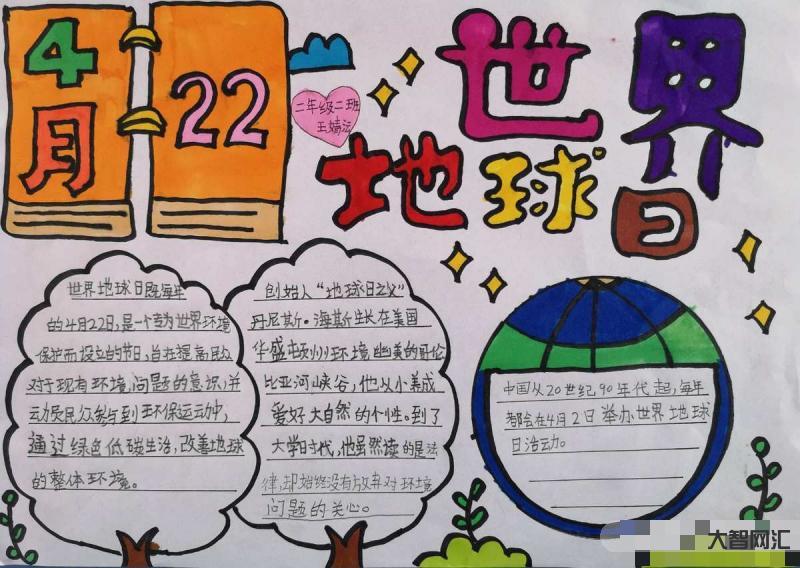 4月
22
二年级二班
王婧法
世界
地球日
世界地球日既每年
的4月22日,是一个专为世界环境
保护而设立的节日,旨在提高民众
对于现有环境问题的意识,并
动员民众参与到环保运动中,
通过绿色低碳生活,改善地球
的整体环境。
创始人“地球日之父”
丹尼斯·海斯生长在美国
华盛顿州环境幽美的哥伦
比亚河峡谷,他从小养成
爱好大自然的个性。到了
大学时代,他虽然读的是法
律,却始终没有放弃对环境
问题的关心。
中国从20世纪90年代起,每年
都会在4月2日举办世界地球
日活动。
大智网汇